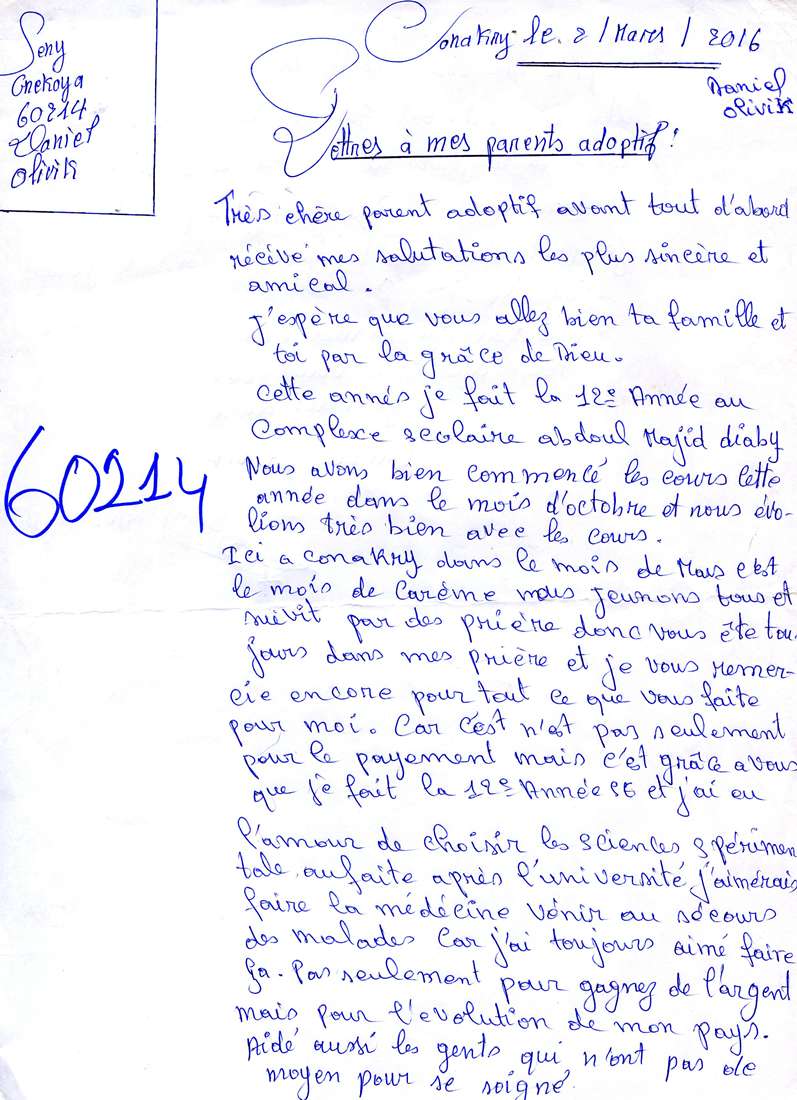 Seny
Onekoya
60214
Daniel
Olivik
Conakry le. 2 / Mars / 2016
Daniel
Olivik
Lettres à mes parents adoptif !
Très chère parent adoptif avant tout d'abord
récévé mes salutations les plus sincère et
amical.
J'espère que vous allez bien ta famille et
toi par la grâce de Dieu.
Cette annés je fait la 12e Année au
Complexe scolaire abdoul Majid diaby
Nous avons bien commencé les cours cette
année dans le mois d'octobre et nous évo-
lions très bien avec les cours.
Ici a conakry dans le mois de Mars c'est
le mois de Carème nous jeunons tous et
suivit par des prière donc vous ête tou-
jours dans mes prière et je vous remer-
cie encore pour tout ce que vous faite
pour moi. Car c'est n'est pas seulement
pour le payement mais c'est grâce a vous
que je fait la 12e Année SE et j'ai eu
l'amour de choisir les sciences spérimen
tale, aufaite après l'université j'aimérais
faire la médécine vénir au sécours
des malades Car j'ai toujours aimé faire
ça. Pas seulement pour gagnez de l'argent
mais pour l'evolution de mon pays.
Aidé aussi les gents qui n'ont pas de
moyen pour se soigné.
60214